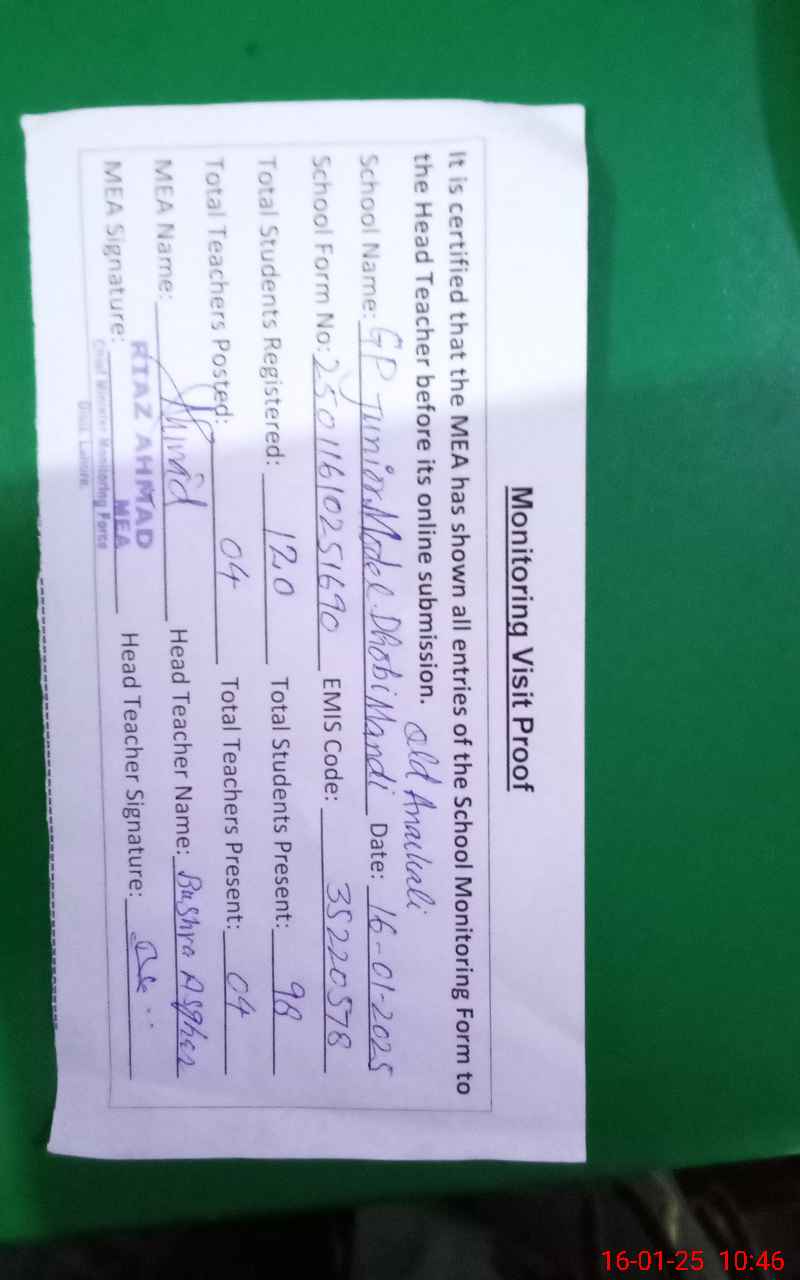 Monitoring Visit Proof
It is certified that the MEA has shown all entries of the School Monitoring Form to
the Head Teacher before its online submission.
Old Anarkali
School Name: GP Junior Model Dhobi Mandi Date: 16-01-2025
School Form No: 25011610251690 EMIS Code: 35220578
Total Students Registered: 120 Total Students Present: 98
Total Teachers Posted: 04 Total Teachers Present: 04
MEA Name: Head Teacher Name: Bushra Asghar
MEA Signature: Head Teacher Signature:
RIAZ AHMAD
MEA
Chief Minister Monitoring Force
Distt. Lahore.
16-01-25 10:46